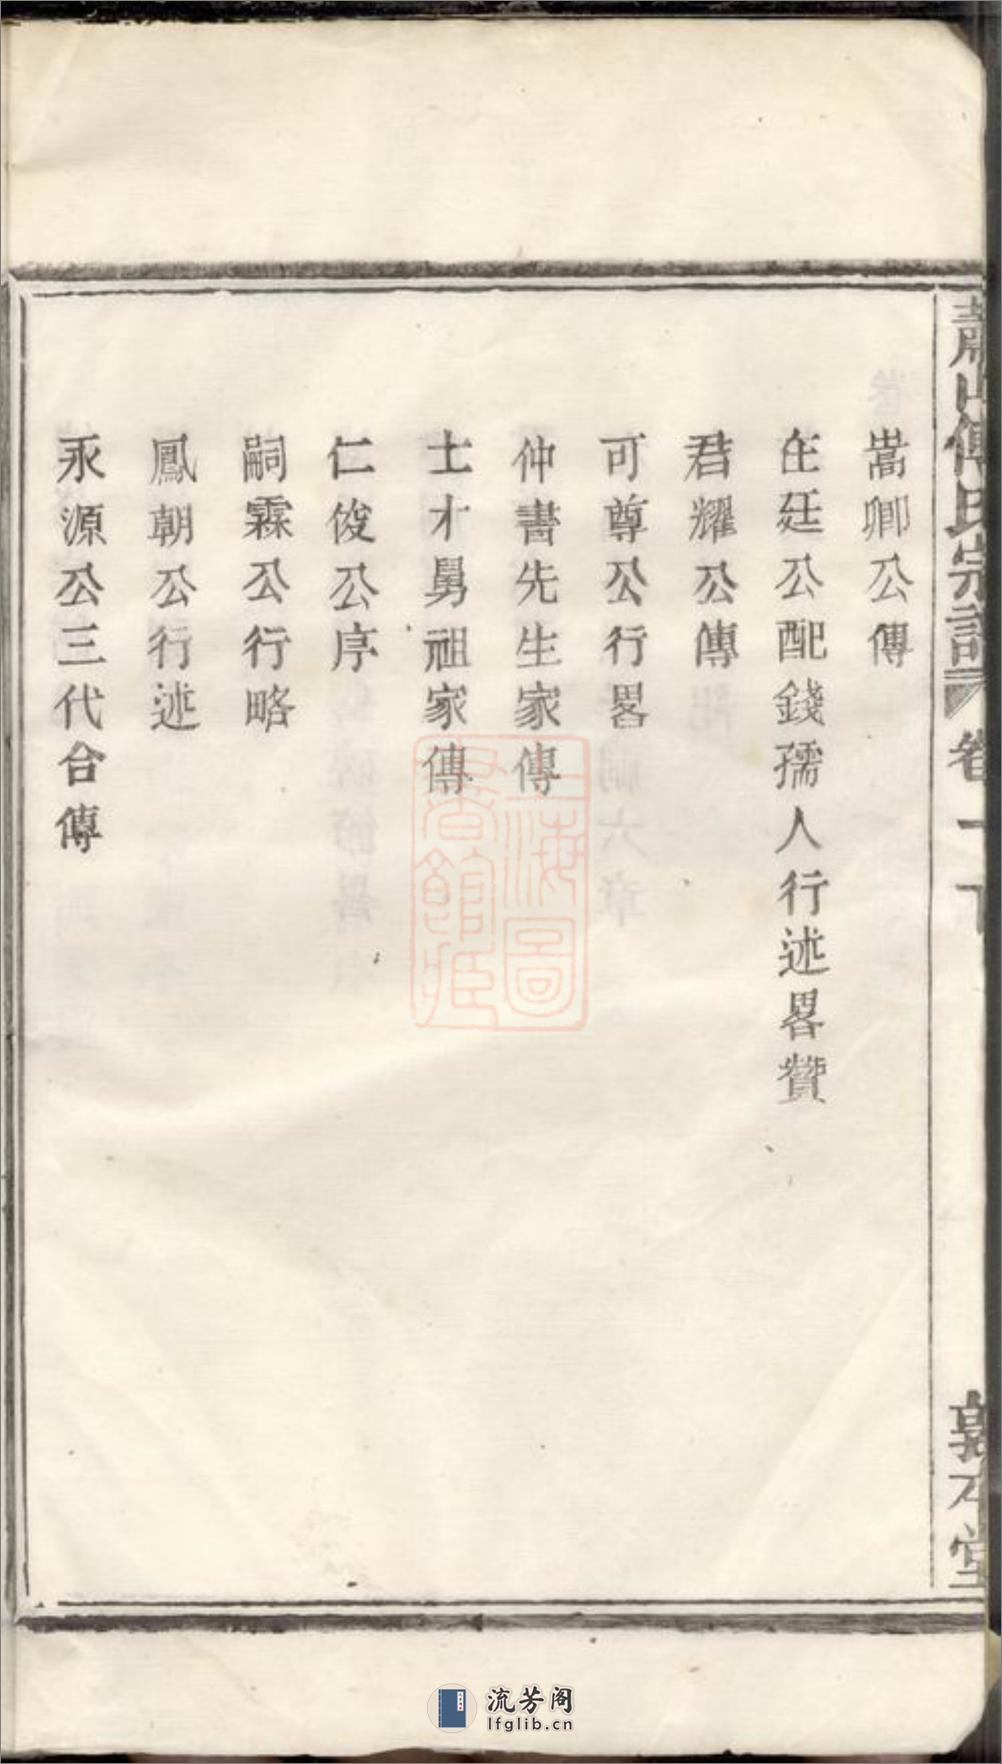 蕭山傅氏宗譜 卷一下 敦本堂
嵩卿公傳
在廷公配錢孺人行述畧贊
君耀公傳
可尊公行畧
仲書先生家傳
士才舅祖家傳
仁俊公序
嗣霖公行略
鳳朝公行述
永源公三代合傳
上海圖書館藏
流芳阁
lfglib.cn